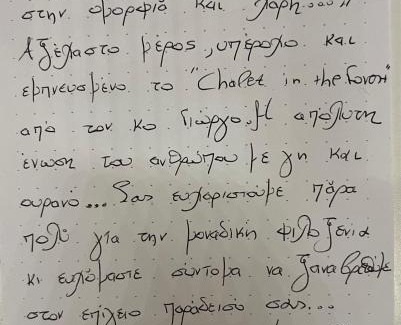 στην ομορφιά και χάρη σου !!
Αξέχαστο μέρος, υπέροχο και
εμπνευσμένο το "Chalet in the forest"
από τον κο Γιώργο. Η απόλυτη
ένωση του ανθρώπου με γη και
ουρανό... Σας ευχαριστούμε πάρα
πολύ για την μοναδική φιλοξενία
κι ευχόμαστε σύντομα να ξαναβρεθούμε
στον επίγειο παράδεισό σας...